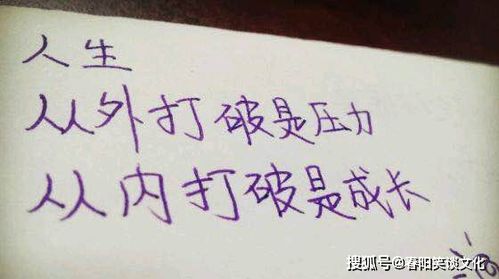 人生
从外打破是压力
从内打破是成长
搜狐号@春阳笑谈文化